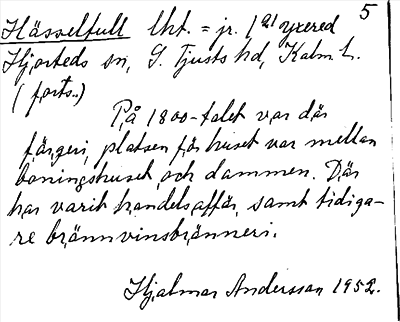 5
Hässelfull lht. = jr. 1 21 yxered
Hjorteds sn, S. Tjusts hd, Kalm. L.
(forts.)
På 1800-talet var där
färgeri, platsen för huset var mellan
boningshuset och dammen. Där
har varit handelsaffär, samt tidiga-
re brännvinsbränneri.
Hjalmar Andersson 1952.